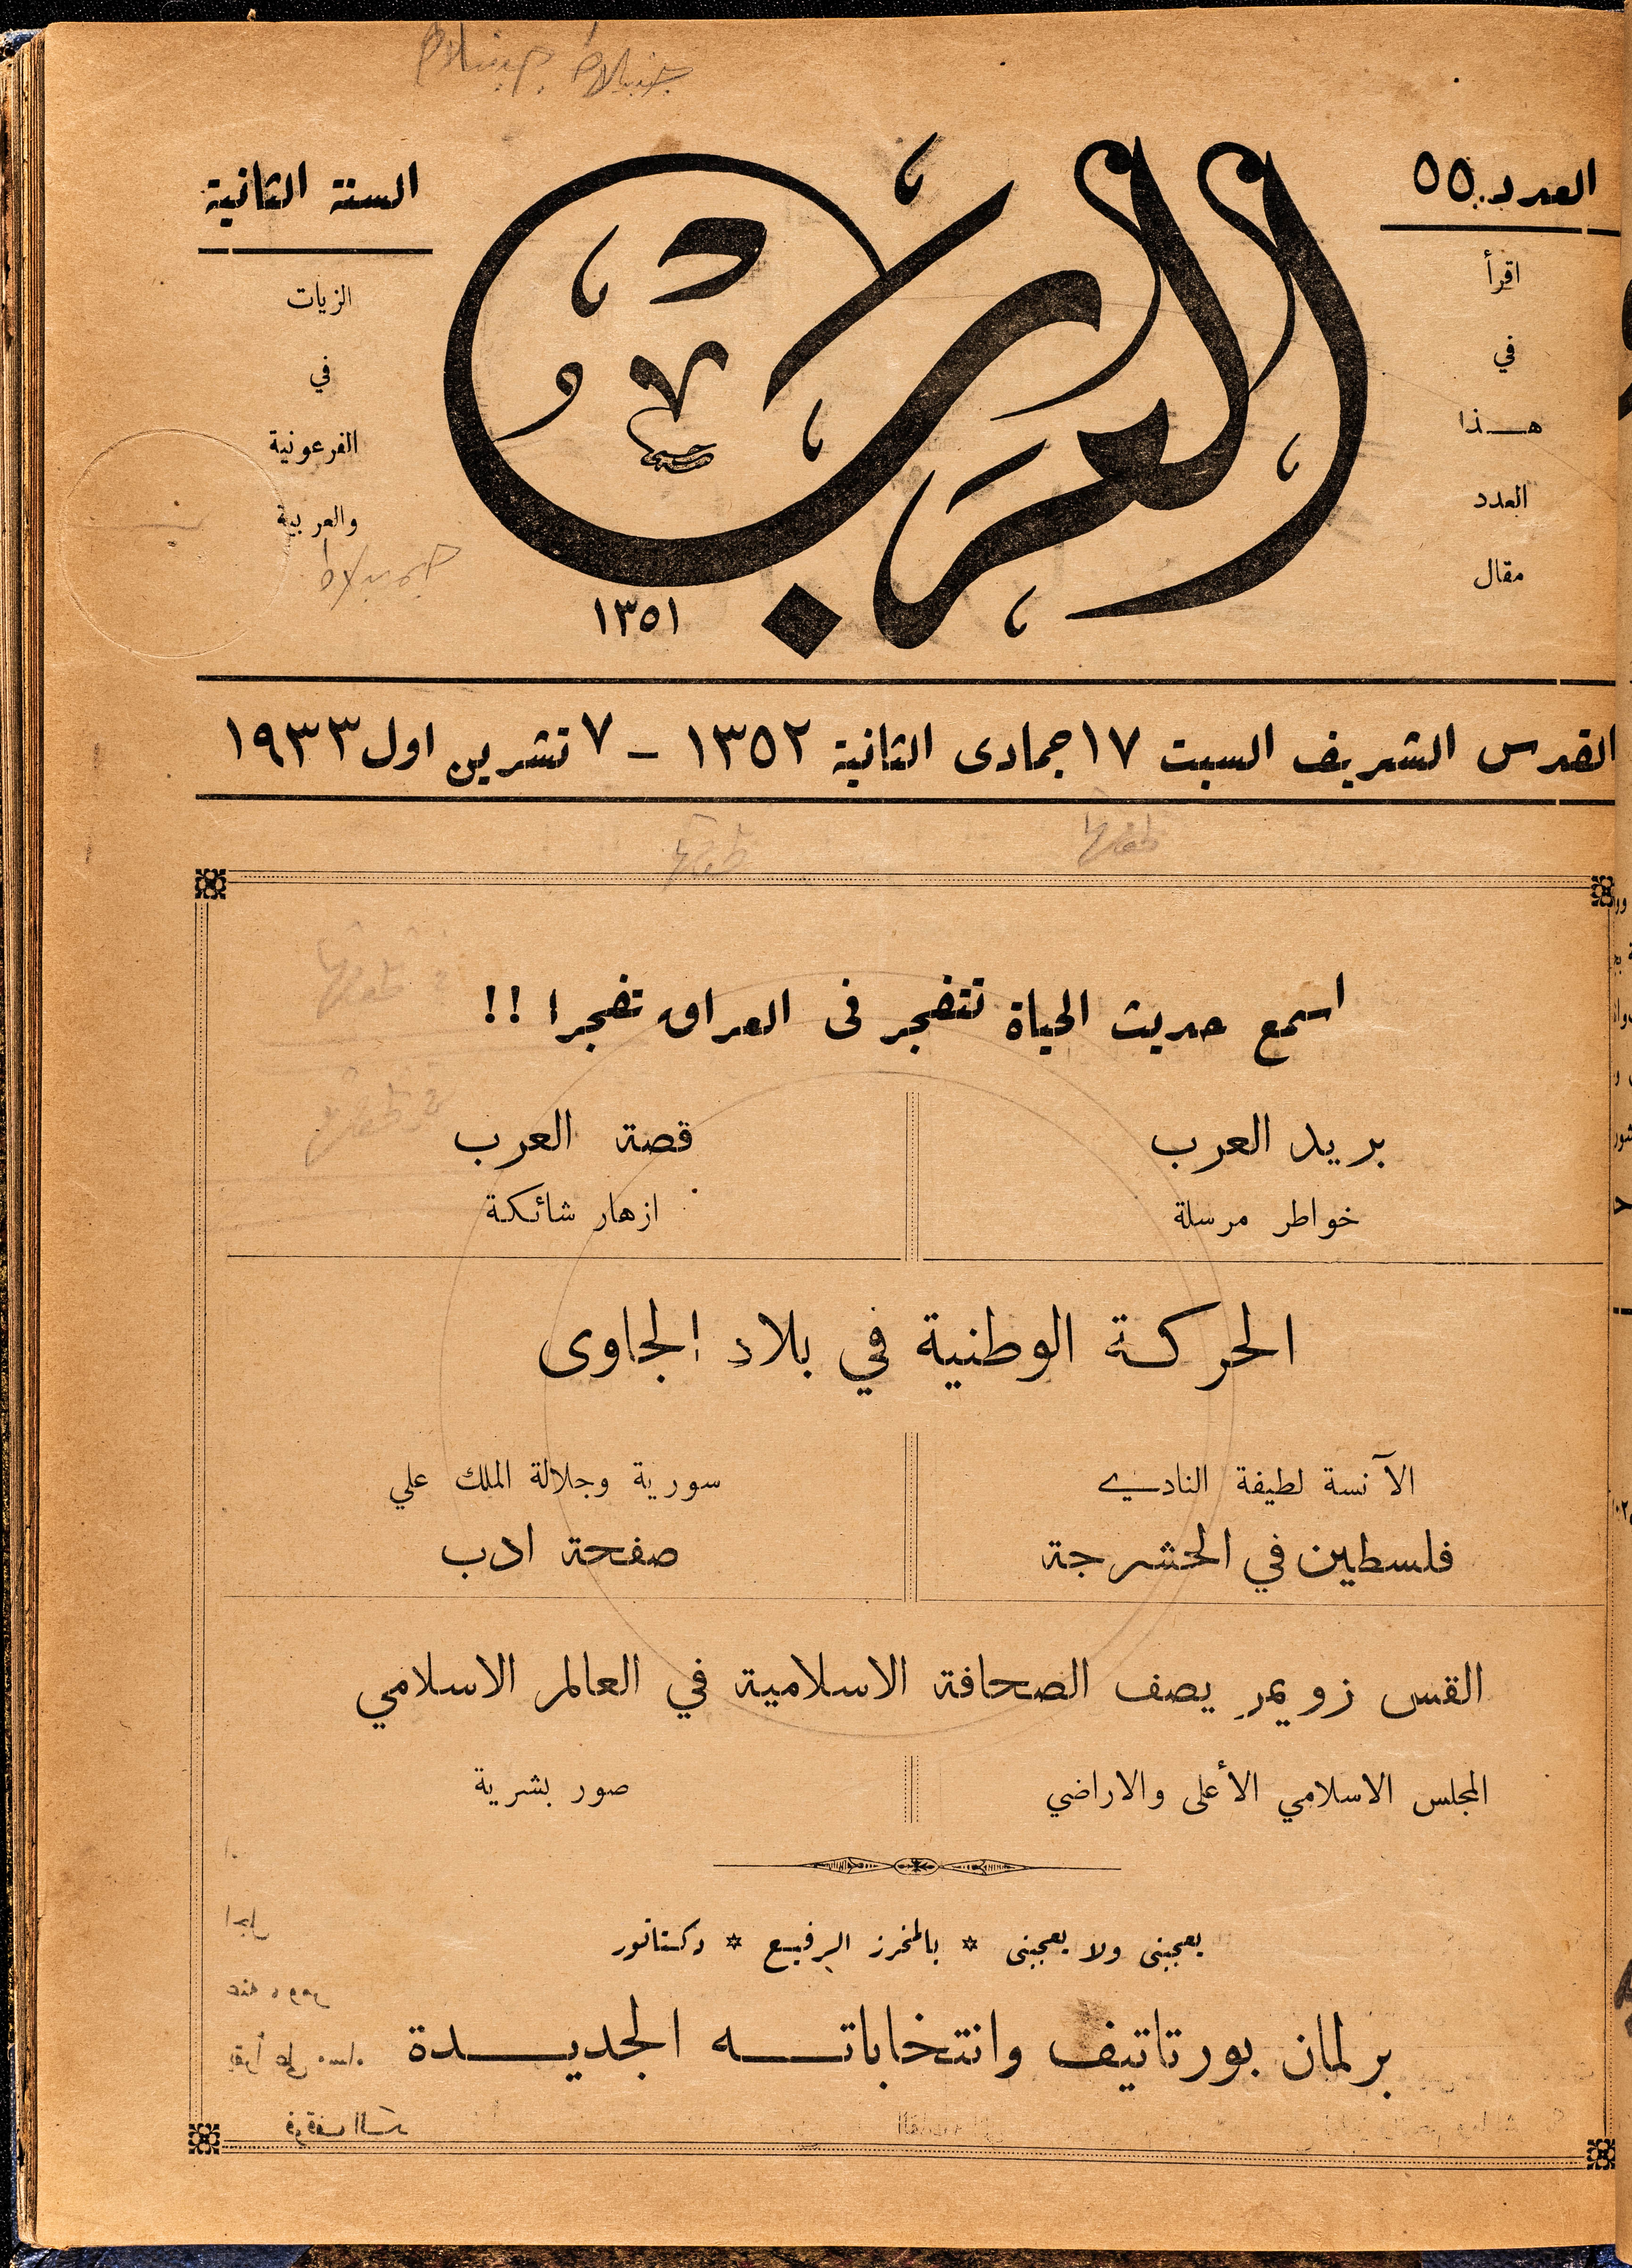 العدد ٥٥
اقرأ
في
هـذا
العدد
مقال
العرب
١٣٥١
السنة الثانية
الزيات
في
الفرعونية
والعربية
القدس الشريف السبت ١٧ جمادى الثانية ١٣٥٢ – ٧ تشرين اول ١٩٣٣
اسمع حديث الحياة تتفجر فى العراق تفجرا !!
بريد العرب
خواطر مرسلة
قصة العرب
ازهار شائكة
الحركة الوطنية في بلاد الجاوى
الآنسة لطيفة النادي
فلسطين في الحشرجة
سورية وجلالة الملك علي
صفحة ادب
القس زويمر يصف الصحافة الاسلامية في العالم الاسلامي
المجلس الاسلامي الأعلى والاراضي
صور بشرية
يعجبنى ولا يعجبنى * بالمخرز الرفيع * دكتاتور
برلمان بورتاتيف وانتخاباته الجديدة